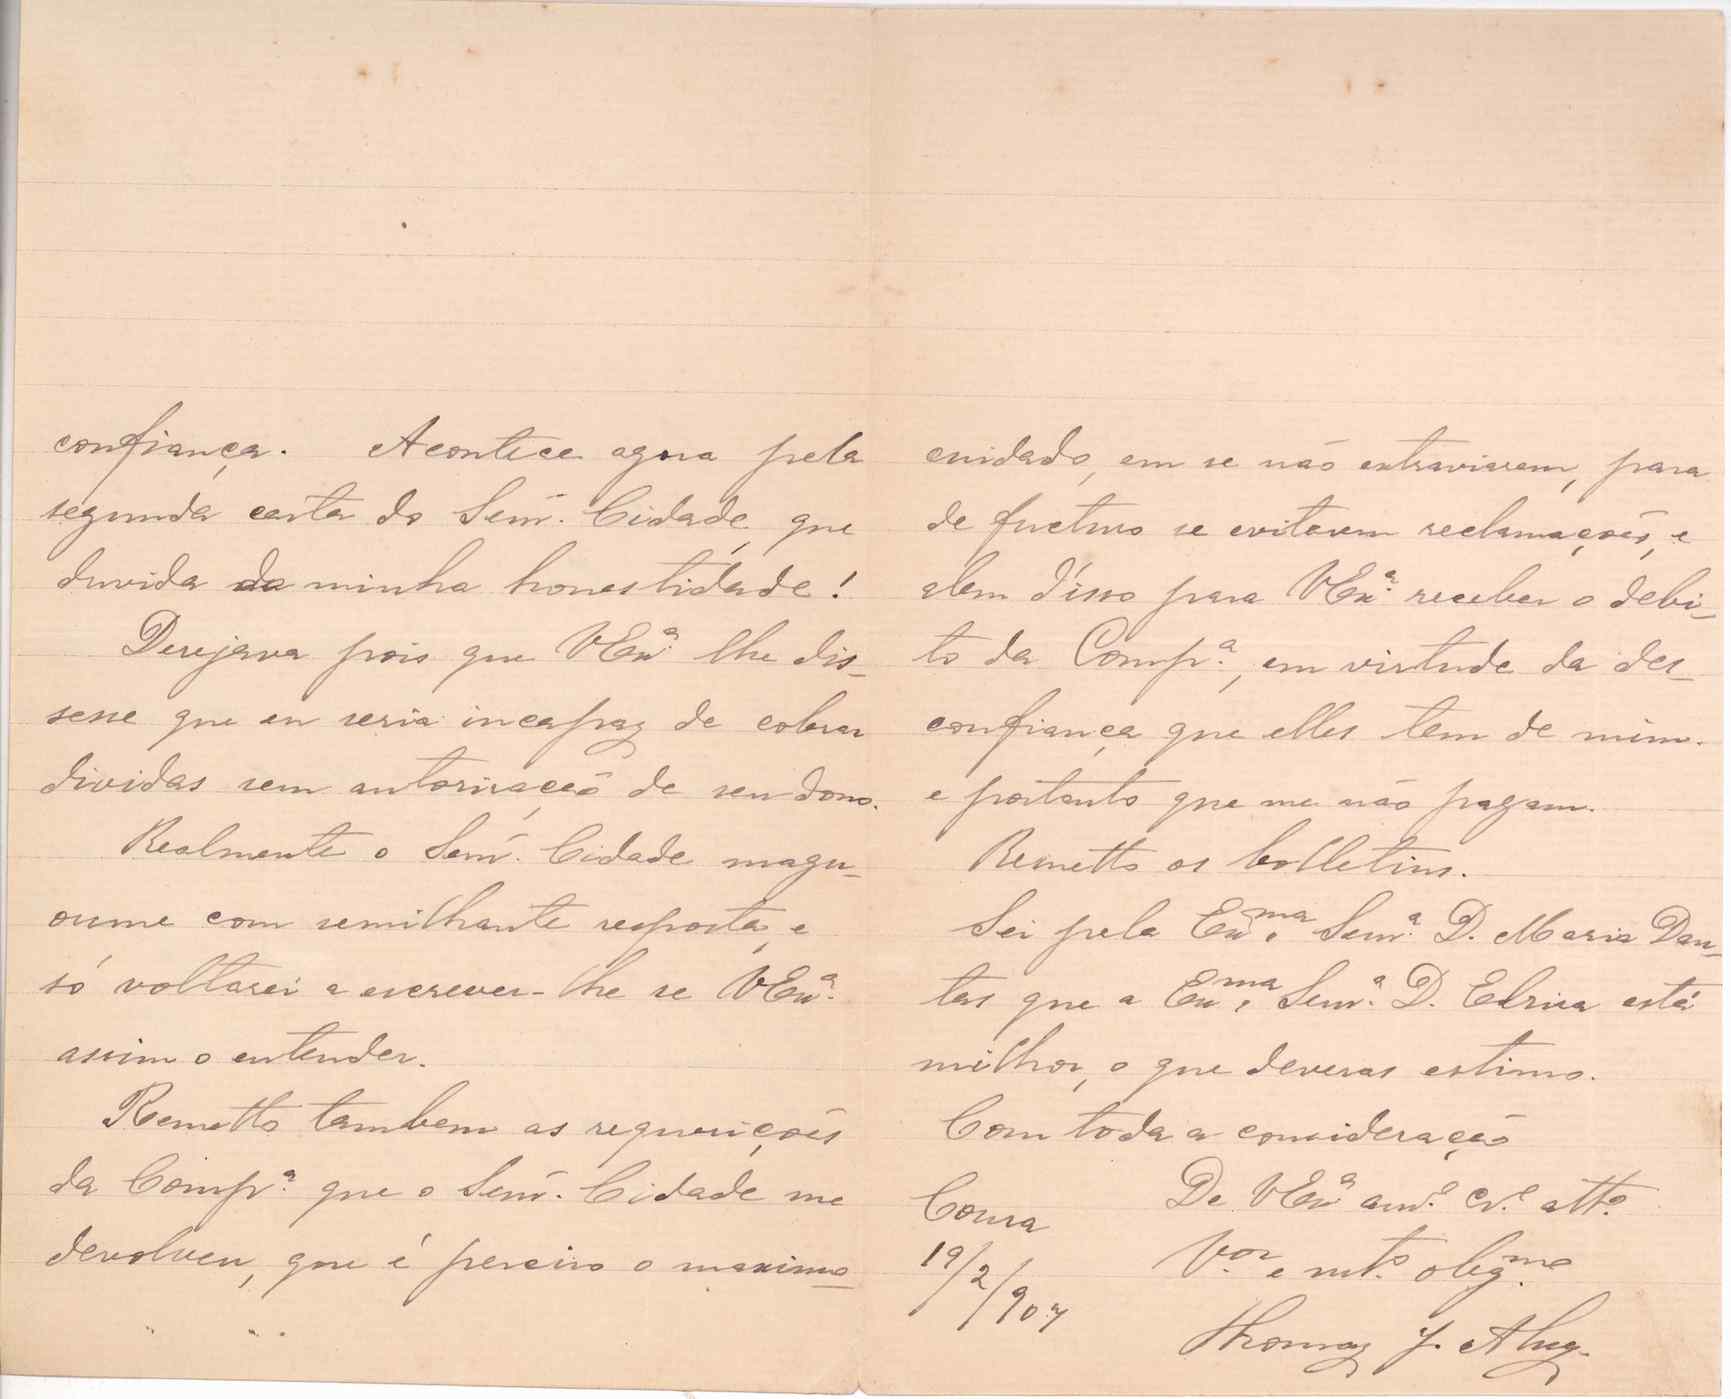 confiança. Acontece agora pela
segunda carta do Senr. Cidade, que
duvida da minha honestidade!
Desejava pois que VExª. lhe dis-
sesse que eu seria incapaz de cobrar
dividas sem autorisação de seu dono.
Realmente o Senr. Cidade magu-
oume com semilhante resposta, e
só voltarei a escrever-lhe se VExª.
assim o entender.
Remetto tambem as requesições
da Compª. que o Senr. Cidade me
devolveu, que é perciso o maximo
cuidado, em se não extraviarem, para
de fucturo se evitarem reclamações, e
alem d'isso para VExª. receber o debi-
to da Compª., em virtude da des-
confiança que elles tem de mim.
e portanto que me não pagam.
Remetto os bolletins.
Sei pela Exma. Senrª. D. Maria Dan-
tas que a Exma. Senrª. D. Elvira está
milhor, o que deveras estimo.
Com toda a consideração
De VExª amº. crº. attº.
Vor. e mtº. obigmo.
Coura
19/2/907
Thomaz J.